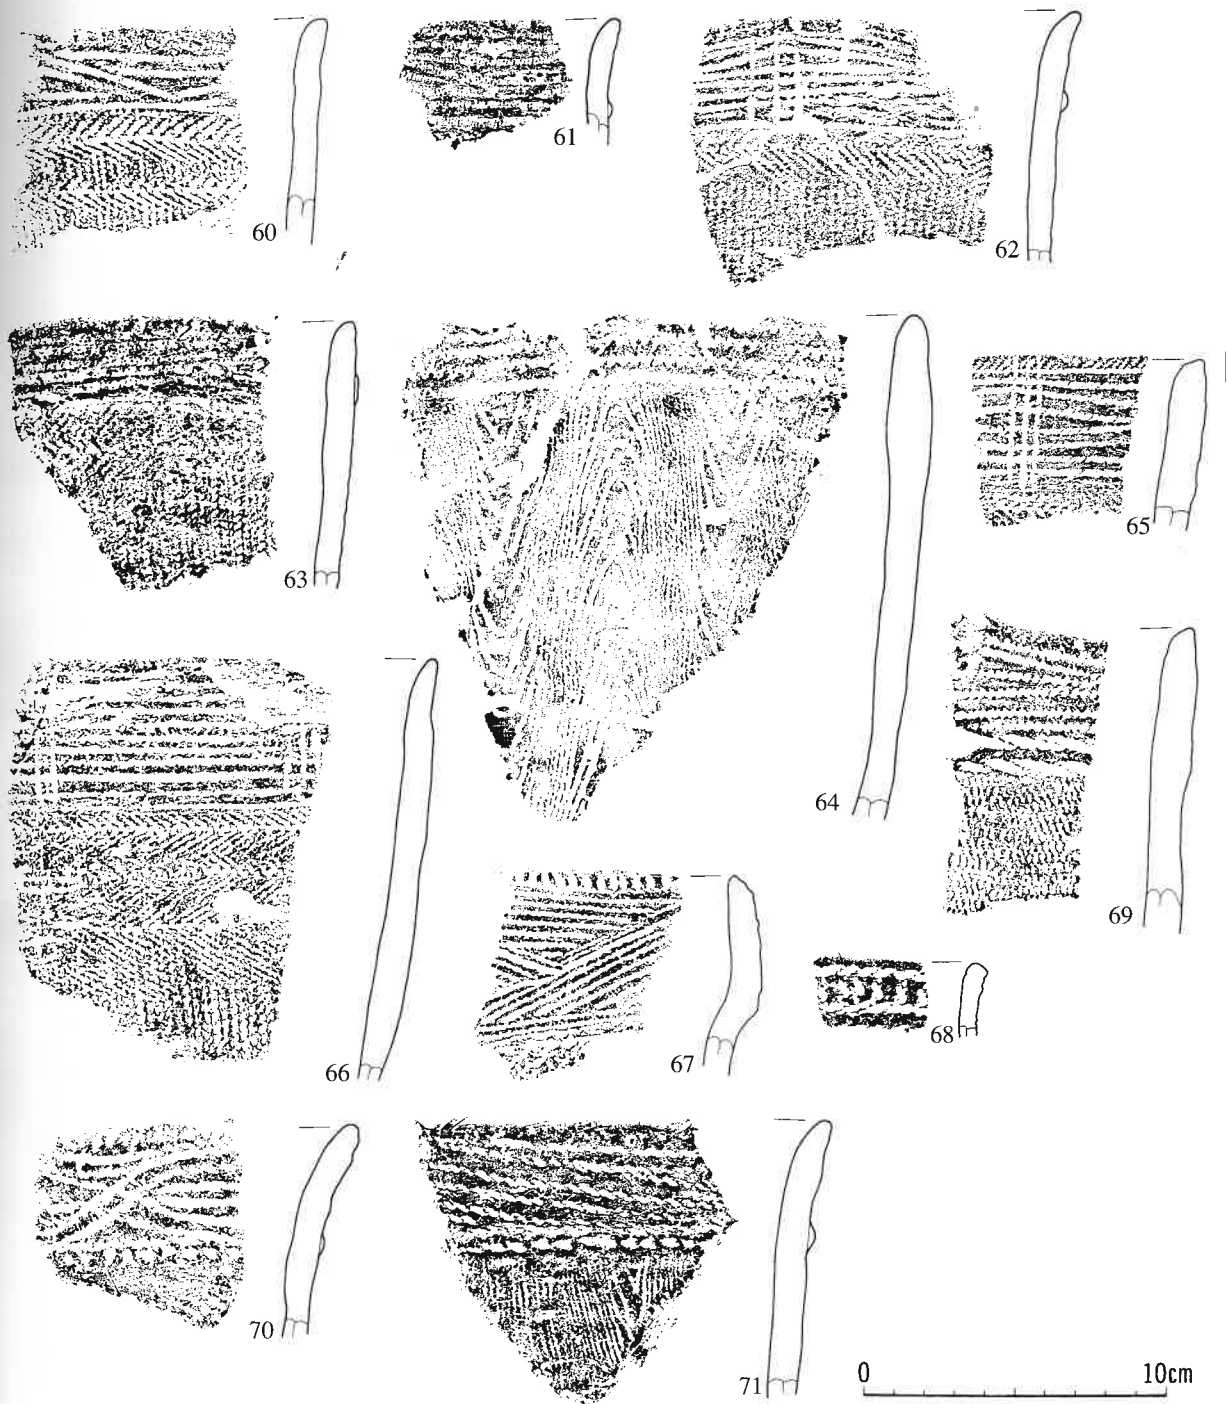 60
61
62
63
64
65
66
67
68
69
70
71
0 10cm